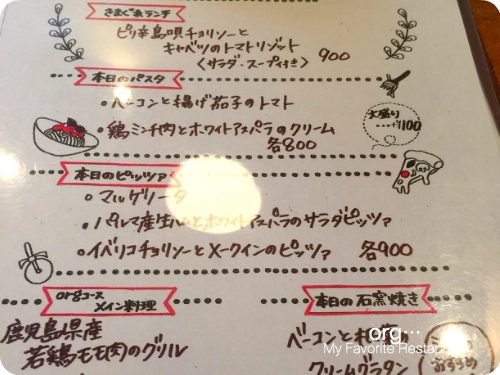 きまぐれランチ
ピリ辛鳥唄チョリソーと
キャベツのトマトリゾット
〈サラダ・スープ付き〉 900
本日のパスタ
・ベーコンと揚げ茄子のトマト
大盛り
+¥100
・鶏ミンチ肉とホワイトアスパラのクリーム
各800
本日のピッツァ
・マルゲリータ
・パルマ産生ハムとホワイトアスパラのサラダピッツァ
・イベリコチョリソーとメークインのピッツァ 各900
orgコース
メイン料理
本日の石窯焼き
鹿児島県産
若鶏モモ肉のグリル
ベーコンと
クリームグラタン
おすすめ
org…
My Favorite Restau